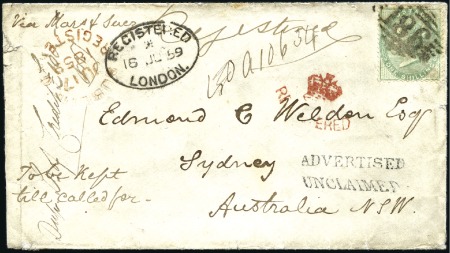 Via Mars
Registered
REGISTERED
16 JU 59
LONDON.
186
REGISTERED
Edmond C Weldon Esq
Sydney
ADVERTISED
UNCLAIMED
To be Kept
till called for -
Australia NSW.